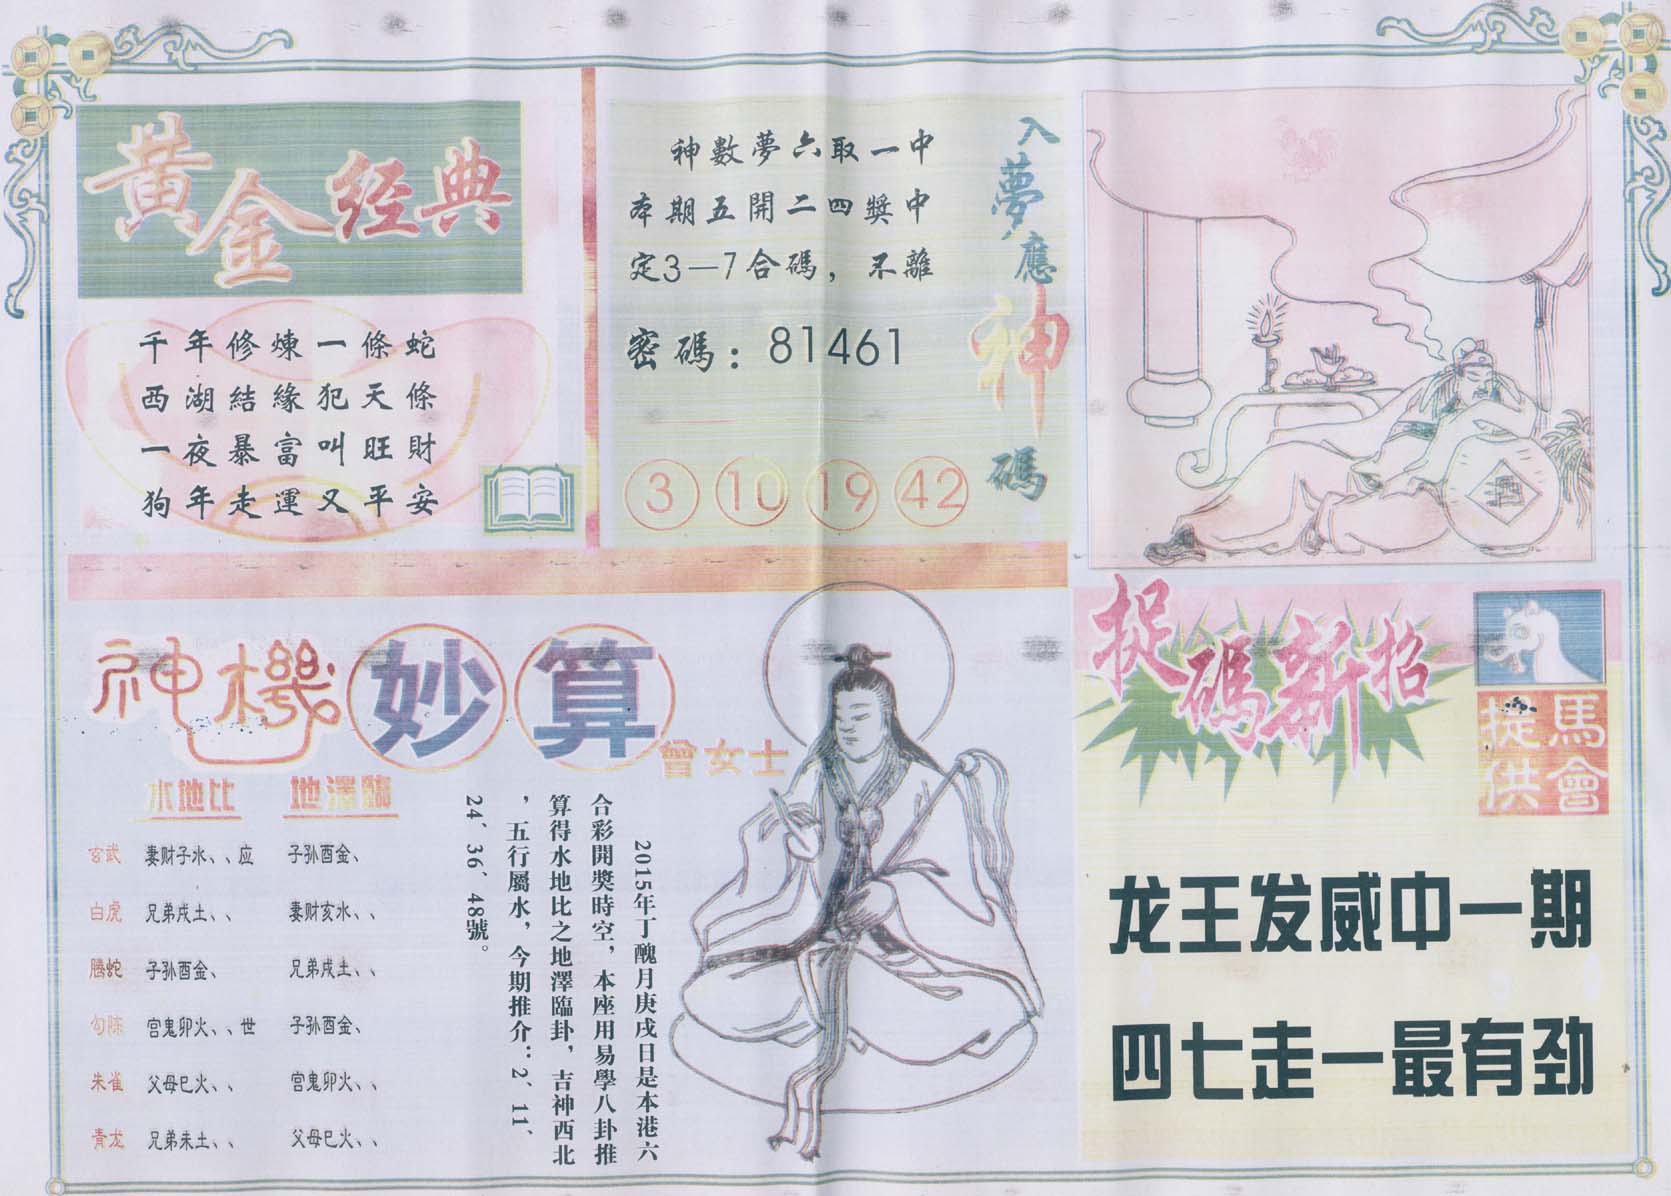 黃金经典
千年修煉一條蛇
西湖結緣犯天條
一夜暴富叫旺財
狗年走運又平安
神數夢六取一中
本期五開二四獎中
定3—7合碼，不離
密碼：81461
3 10 19 42
入夢應神碼
神機妙算
曾女士
水地比 地澤臨
玄武 妻财子水、、应 子孙酉金、
白虎 兄弟戍土、、 妻财亥水、、
腾蛇 子孙酉金、 兄弟戍土、、
勾陈 宫鬼卯火、、世 子孙酉金、
朱雀 父母巳火、、 宫鬼卯火、、
青龙 兄弟未土、、 父母巳火、、
2015年丁醜月庚戌日是本港六
合彩開獎時空，本座用易學八卦推
算得水地比之地澤臨卦，吉神西北
，五行屬水，今期推介：2、11、
24、36、48號。
捉碼新招
馬會
提供
龙王发威中一期
四七走一最有劲